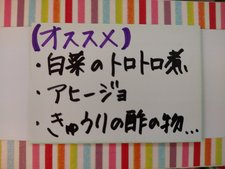 (オススメ)
・白菜のトロトロ煮
・アヒージョ
・きゅうりの酢の物…